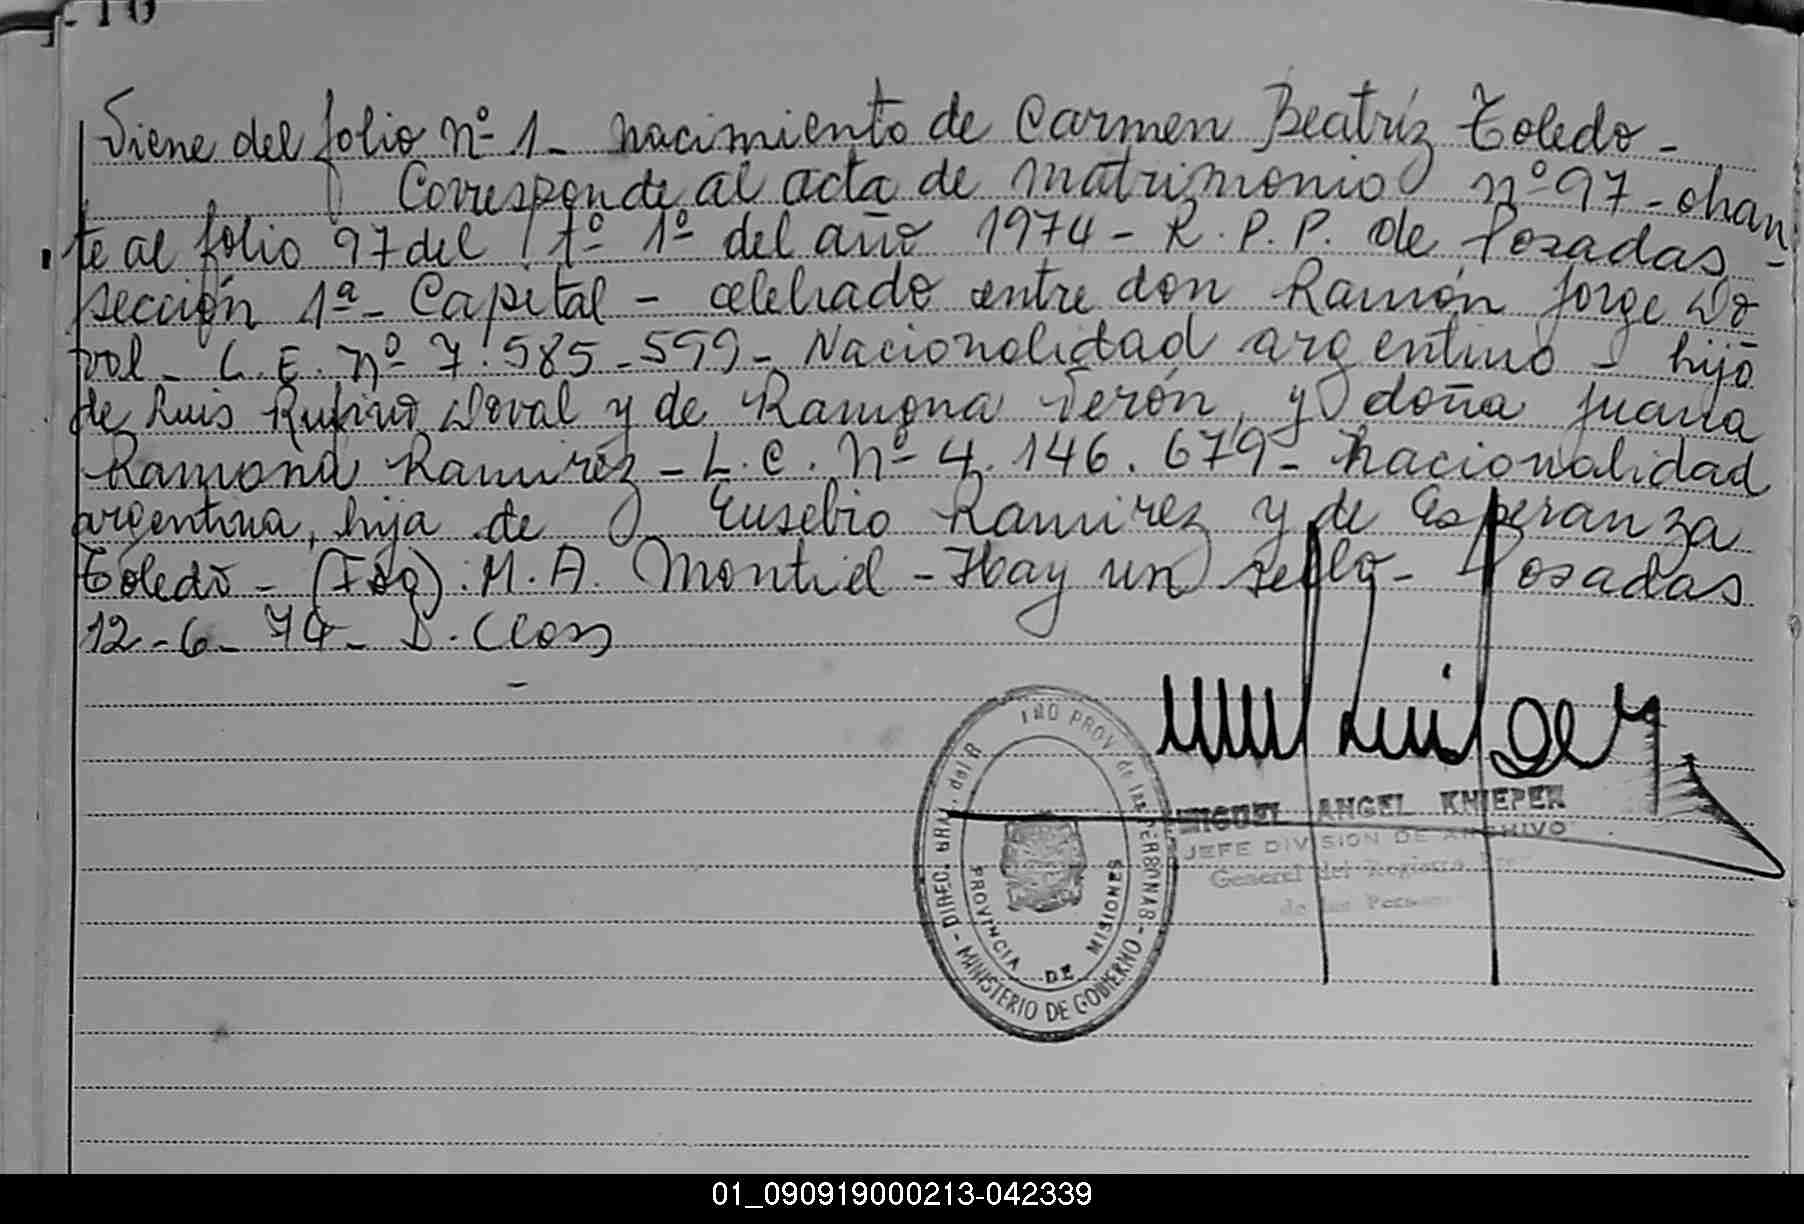 Viene del folio Nº 1 - Nacimiento de Carmen Beatríz Toledo -
Corresponde al acta de Matrimonio nº 97 - obran
te al folio 97 del tº 1º del año 1974 - R. P. P. de Posadas -
sección 1ª - Capital - celebrado entre don Ramón Jorge Do
val - L. E. nº 7.585.599 - Nacionalidad argentino - hijo
de Luis Rufino Doval y de Ramona Verón, y doña Juana
Ramona Ramirez - L. C. Nº 4.146.679 - Nacionalidad
argentina, hija de Eusebio Ramirez y de Esperanza
Toledo - (Fdo). M. A. Montiel - Hay un sello - Posadas
12 - 6 - 74 - D. Closs
DIREC. GRAL. del R PROV de las PERSONAS - MINISTERIO DE GOBIERNO -
PROVINCIA DE MISIONES
MIGUEL ANGEL KNIEPER
JEFE DIVISION DE ARCHIVO
General del Registro
de las
01_090919000213-042339